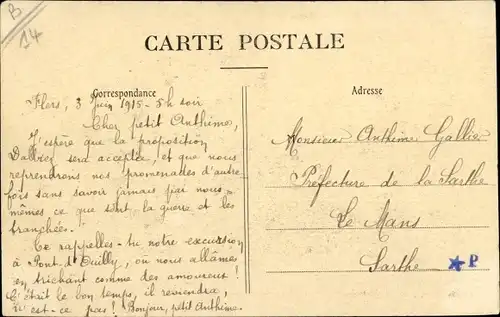 B
14
CARTE POSTALE
Correspondance
Flers, 3 Juin 1915 - 5h soir
Cher petit Anthime,
J'espère que la proposition
sera acceptée, et que nous
reprendrons nos promenades d'autre
fois sans savoir jamais par nous-
mêmes ce que sont la guerre et les
tranchées.
Te rappelles-tu notre excursion
à Pont-d'Ouilly, où nous allâmes
en trichant comme des amoureux!
C'était le bon temps, il reviendra,
n'est-ce pas! Bonjour, petit Anthime.
Adresse
Monsieur Anthime Gallier
Préfecture de la Sarthe
Le Mans
Sarthe
P